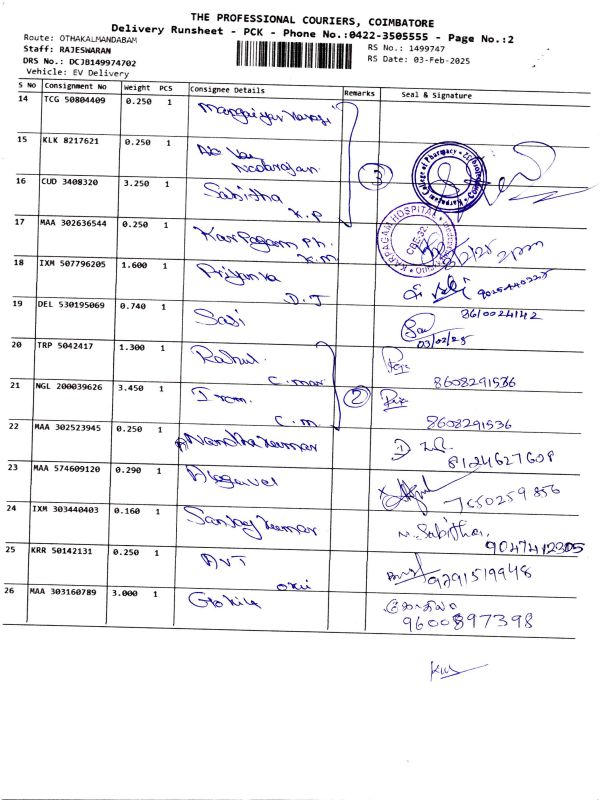 THE PROFESSIONAL COURIERS, COIMBATORE
Delivery Runsheet - PCK - Phone No.:0422-3505555 - Page No.:2
Route: OTHAKALMANDABAM
RS No.: 1499747
Staff: RAJESWARAN
RS Date: 03-Feb-2025
DRS No.: DCJB149974702
Vehicle: EV Delivery
S No Consignment No Weight PCS Consignee Details Remarks Seal & Signature
14 TCG 50804409 0.250 1
15 KLK 8217621 0.250 1
3
16 CUD 3408320 3.250 1 Sabitha
K.P
17 MAA 302636544 0.250 1 Karpagam Ph.
K.M
KARPAGAM HOSPITAL
CBE-32
18 IXM 507796205 1.600 1 Priyanka
D.J
19 DEL 530195069 0.740 1 Sasi
8610024142
03/02/25
20 TRP 5042417 1.300 1 Rahul
8608291536
21 NGL 200039626 3.450 1
C.M
2
8608291536
22 MAA 302523945 0.250 1 Nandhakumar
8124627608
23 MAA 574609120 0.290 1 Alagavel
7550259856
24 IXM 303440403 0.160 1 Sanjay kumar
M. Sabitha
9047412305
25 KRR 50142131 0.250 1 AVT
9791519948
26 MAA 303160789 3.000 1 Gokila
கோகிலா
9600897398